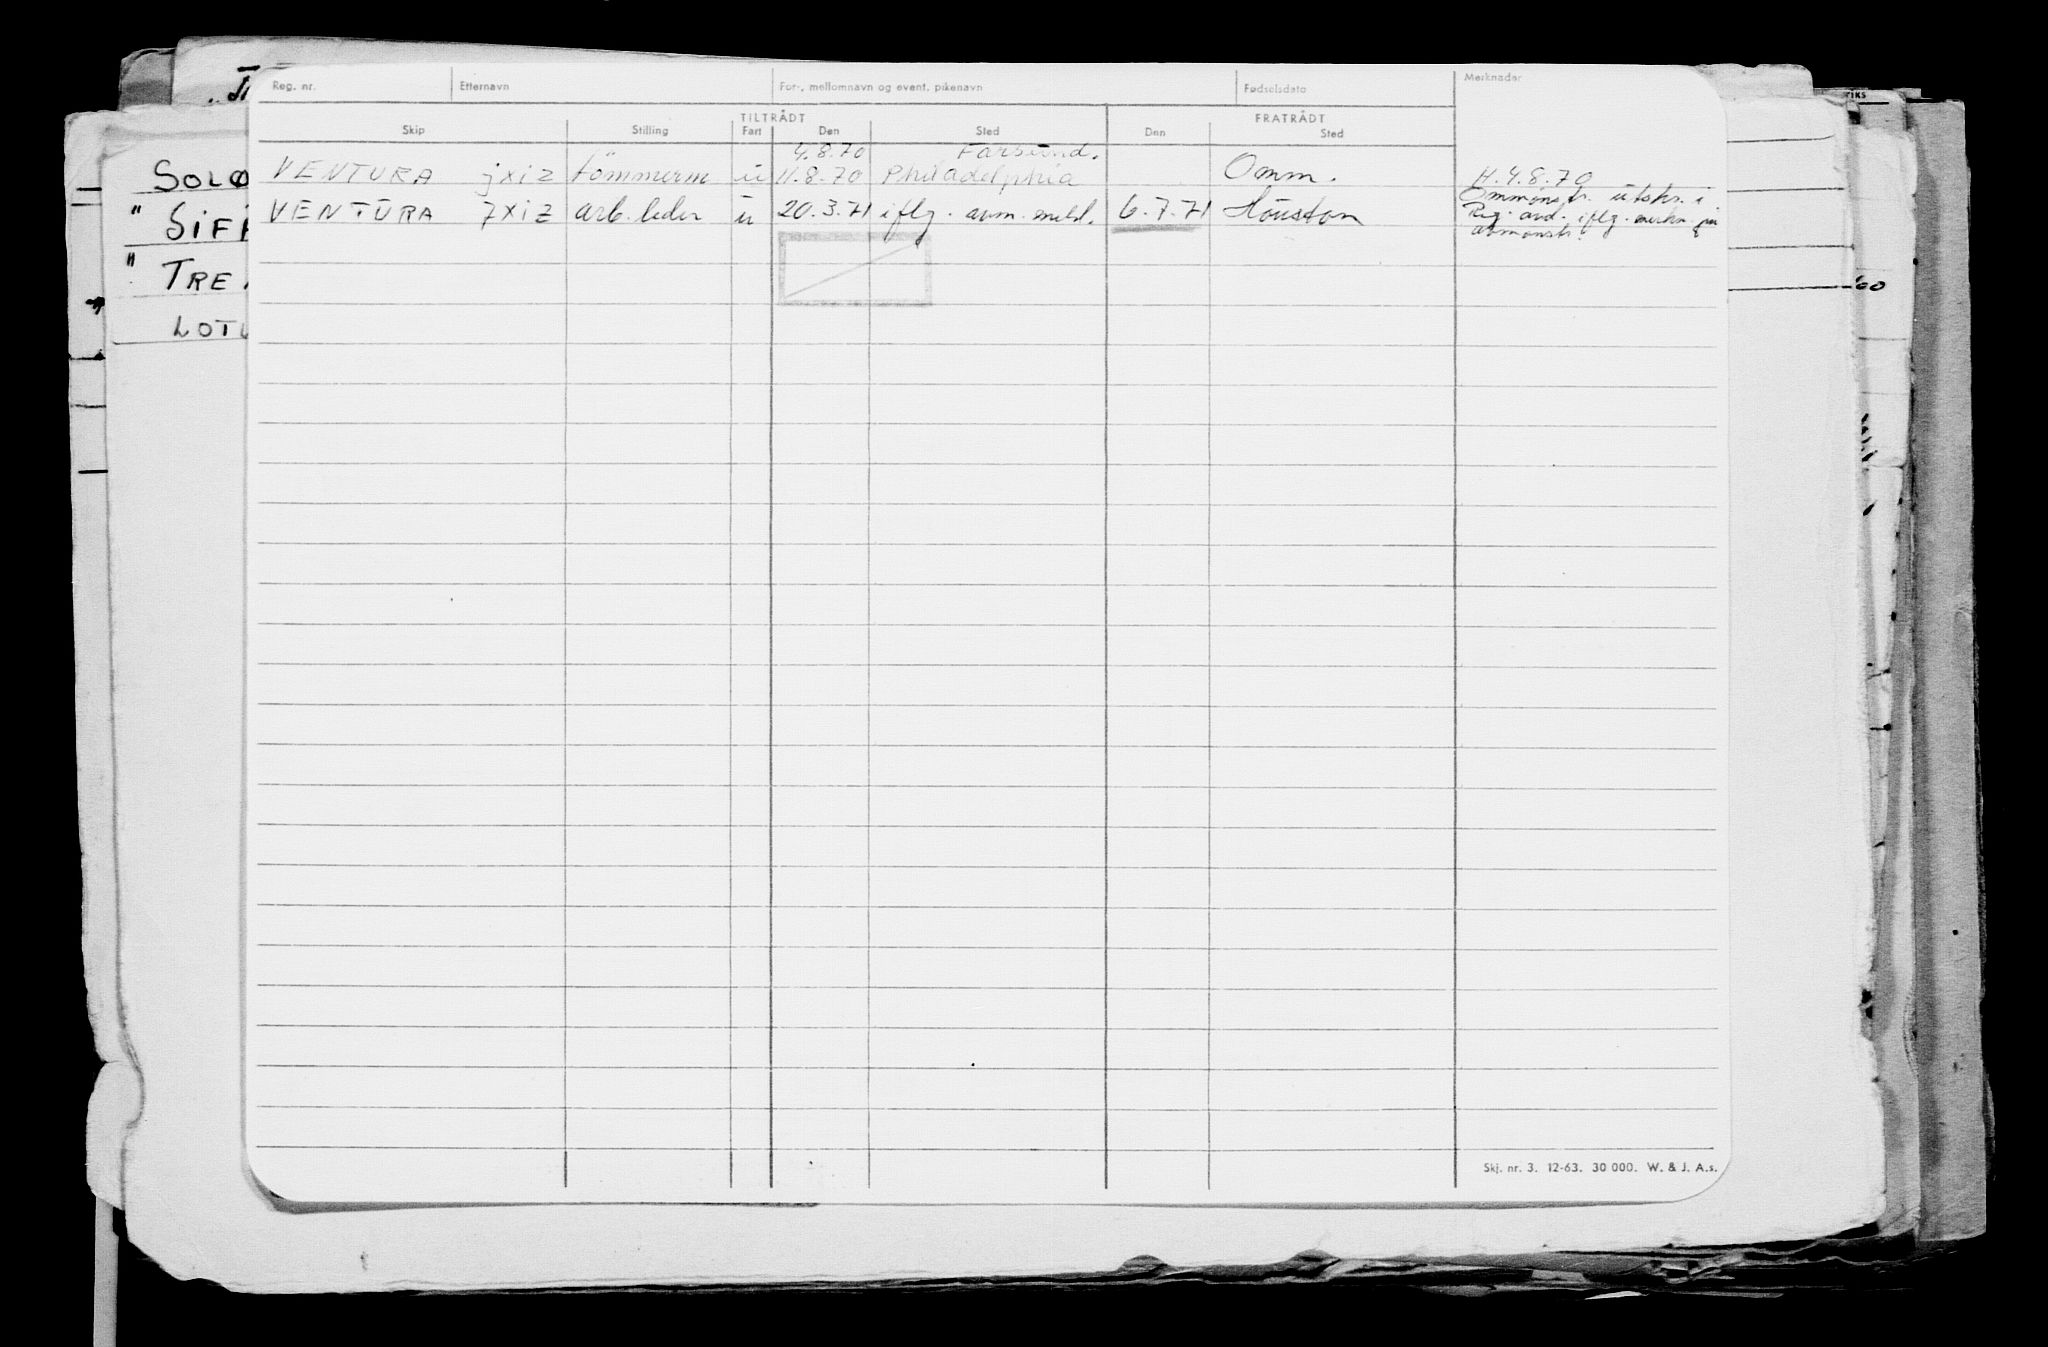 Reg. nr. Etternavn For-, mellomnavn og event. pikenavn Fødselsdato Merknader
TILTRÅDT FRATRÅDT
Skip Stilling Fart Den Sted Den Sted
4.8.70 Farsund.
VENTURA jxiz tömmerm u 11.8.70 Philadelphia Omm. H. 4.8.70
VENTURA jxiz arb. leder u 20.3.71 iflg. avm. meld. 6.7.71 Houston Ommønstr. utskr. i
Reg. avd. iflg. merkn. på
avmønstr.
SOLØ
" SIFI
" TRE
LOTU
riks
60
Skj. nr. 3. 12-63. 30 000. W. & J. A.s.